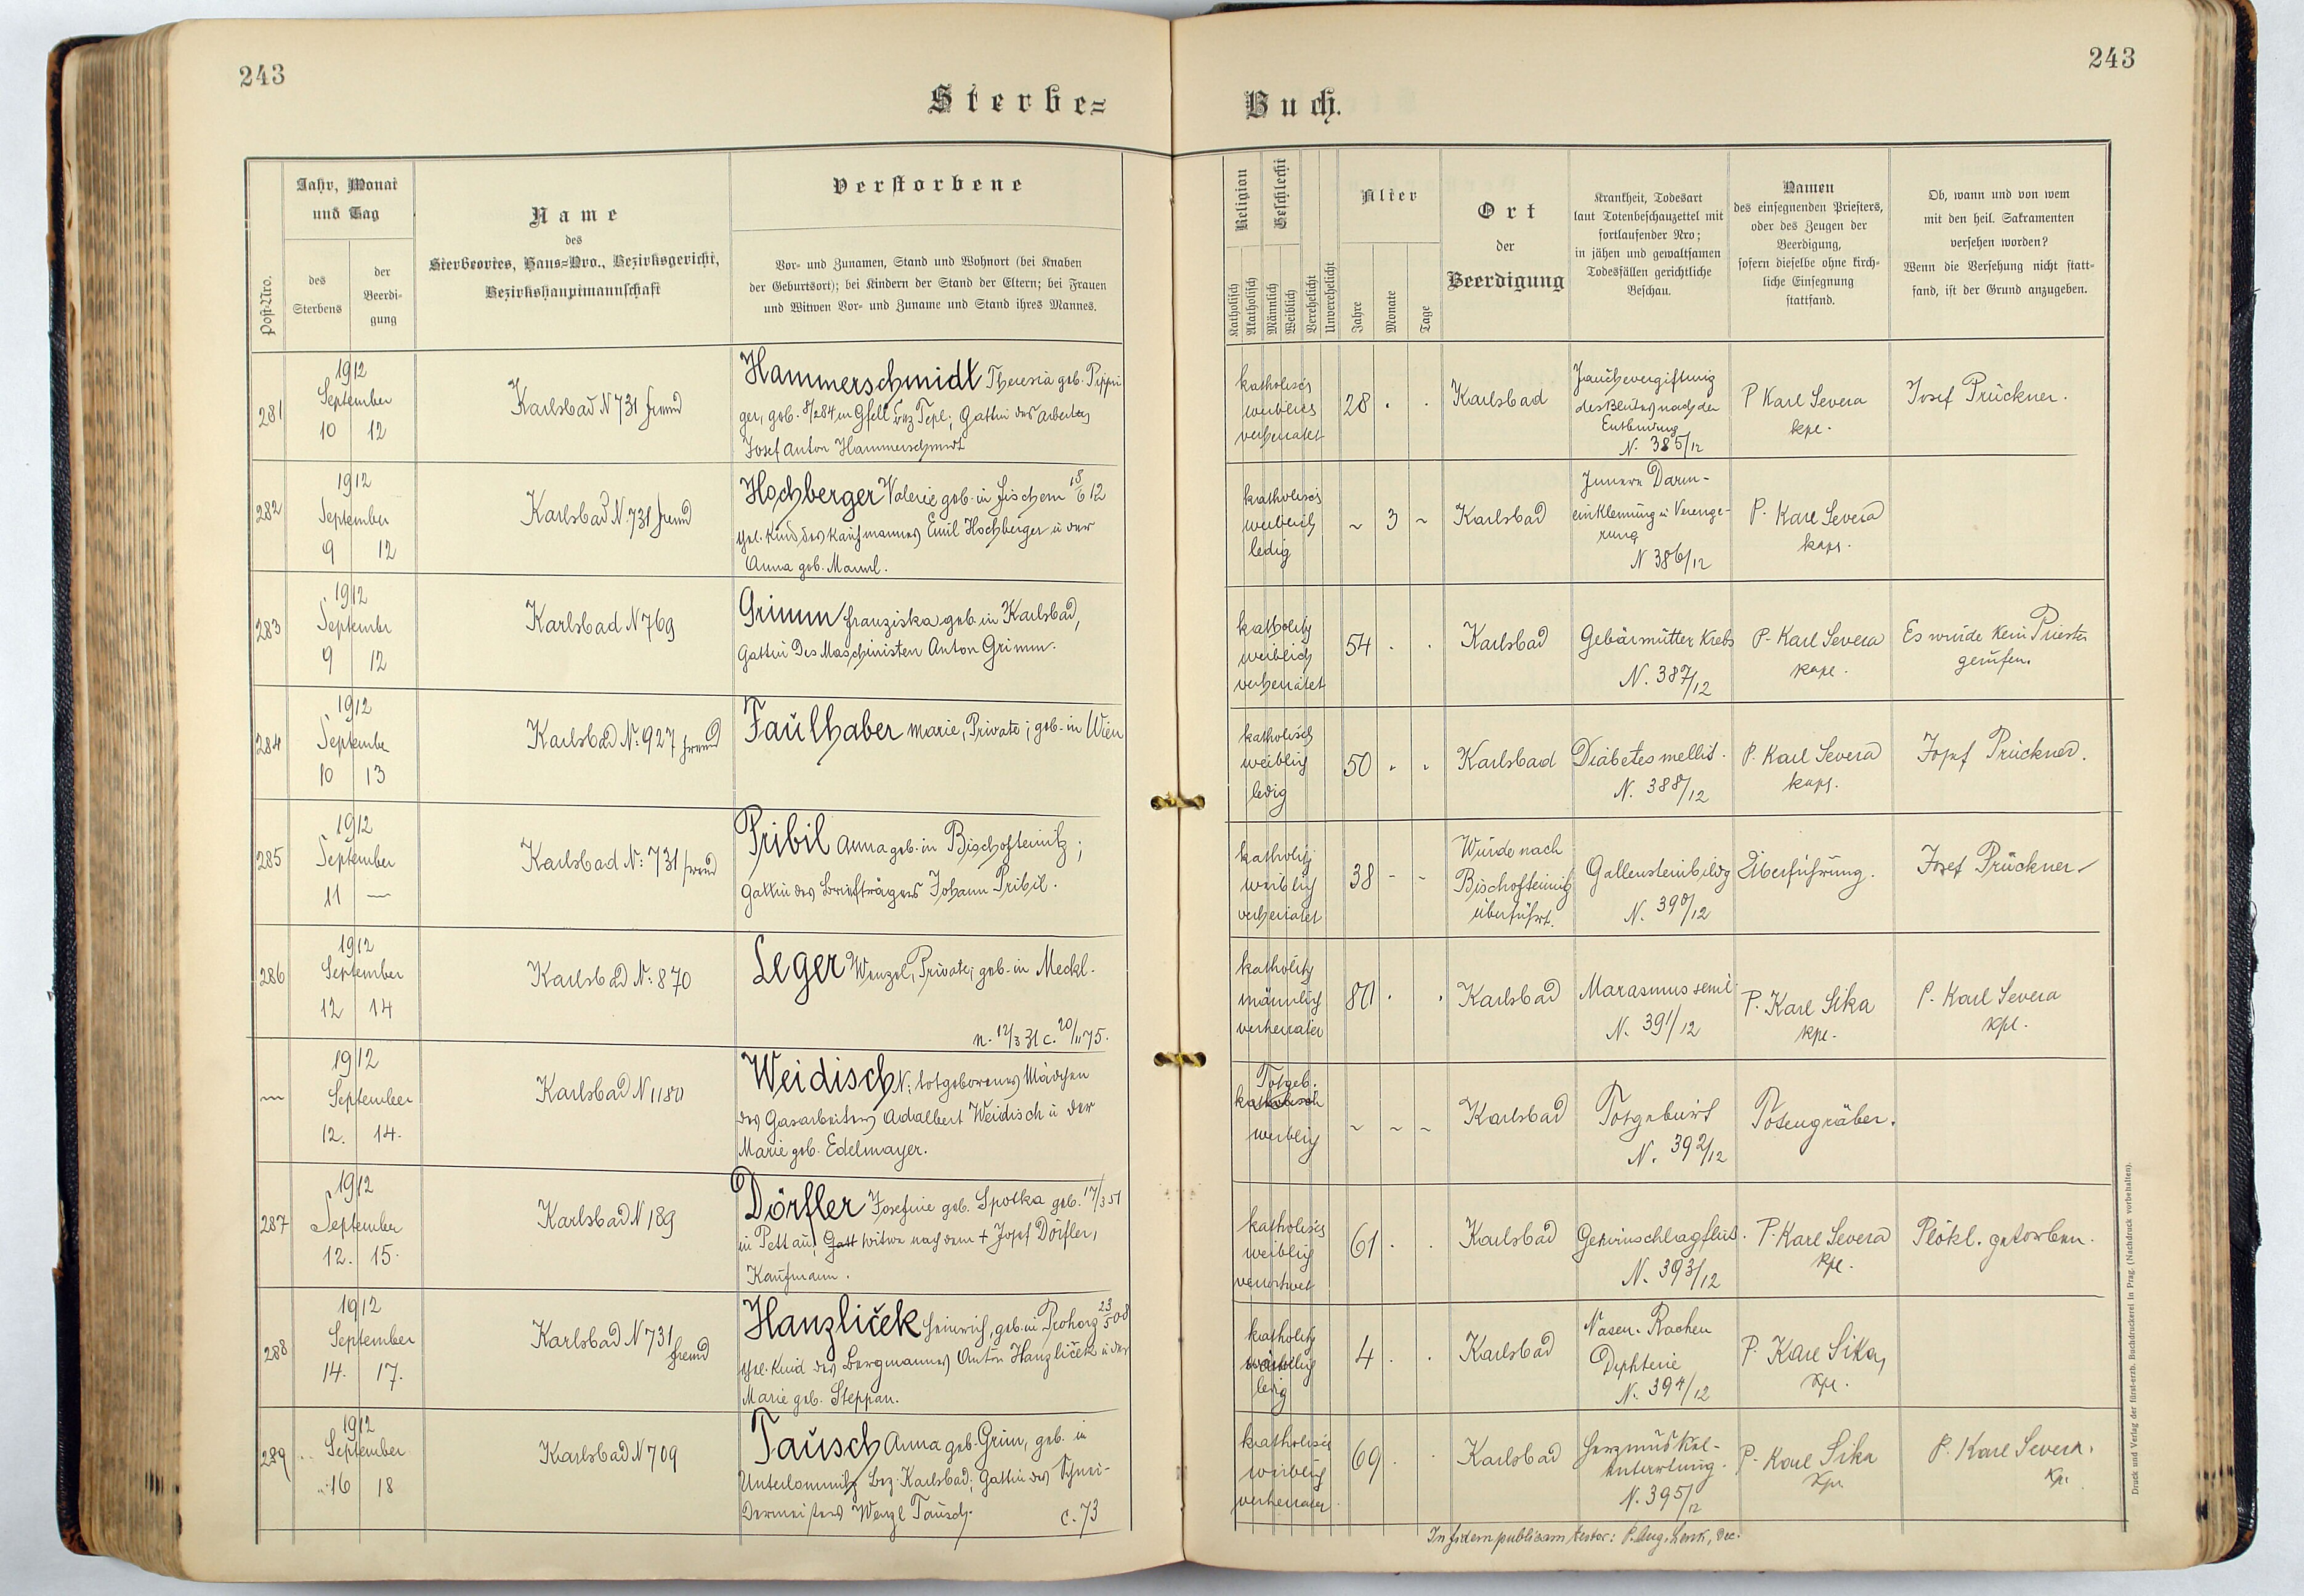 243
243
Sterbe=
Buch.
Post-Nro.
Jahr, Monat
und Tag
des
Sterbens
der
Beerdi-
gung
Name
des
Sterbeortes, Haus=Nro., Bezirksgericht,
Bezirkshauptmannschaft
Verstorbene
Vor- und Zunamen, Stand und Wohnort (bei Knaben
der Geburtsort); bei Kindern der Stand der Eltern; bei Frauen
und Witwen Vor- und Zuname und Stand ihres Mannes.
Religion
Katholisch
Akatholisch
Geschlecht
Männlich
Weiblich
Verehelicht
Unverehelicht
Alter
Jahre
Monate
Tage
Ort
der
Beerdigung
Krankheit, Todesart
laut Totenbeschauzettel mit
fortlaufender Nro;
in jähen und gewaltsamen
Todesfällen gerichtliche
Beschau.
Namen
des einsegnenden Priesters,
oder des Zeugen der
Beerdigung,
sofern dieselbe ohne kirch-
liche Einsegnung
stattfand.
Ob, wann und von wem
mit den heil. Sakramenten
versehen worden?
Wenn die Versehung nicht statt-
fand, ist der Grund anzugeben.
281
1912
September
10 12
Karlsbad N 731 fremd
Hammerschmidt Theresia geb. Pippi
ger, geb. 8/2 84 in Gfell Bez Tepl; Gattin des Arbeiters
Josef Anton Hammerschmidt
katholisch
weiblich
verheiratet
28 . .
Karlsbad
Jauchevergiftung
des Blutes nach der
Entbindung
N. 385/12
P Karl Severa
kpl.
Josef Prückner.
282
1912
September
9 12
Karlsbad N. 731 fremd
Hochberger Valerie geb. in Fischern 18/6 12
ehl. Kind des Kaufmannes Emil Hochberger u der
Anna geb. Mannl.
katholisch
weiblich
ledig
~ 3 ~
Karlsbad
Innere Darm-
einklemmung u Verenge-
rung
N 386/12
P. Karl Severa
kapl.
283
1912
September
9 12
Karlsbad N 769
Grimm Franziska geb in Karlsbad,
Gattin des Maschinisten Anton Grimm.
katholisch
weiblich
verheiratet
54 . .
Karlsbad
Gebärmutter Krebs
N. 387/12
P. Karl Severa
kapl.
Es wurde kein Priester
gerufen.
284
1912
September
10 13
Karlsbad N: 927 fremd
Faulhaber Marie, Private; geb. in Wien
katholisch
weiblich
ledig
50 . .
Karlsbad
Diabetes mellit.
N. 388/12
P. Karl Severa
kapl.
Josef Prückner.
285
1912
September
11 —
Karlsbad N: 731 fremd
Pribil Anna geb. in Bischofteinitz;
Gattin des Briefträgers Johann Pribil.
katholisch
weiblich
verheiratet
38 - -
Wurde nach
Bischofteinitz
überführt.
Gallensteinbildg
N. 390/12
Überführung.
Josef Prückner
286
1912
September
12 14
Karlsbad N: 870
Leger Wenzel, Private; geb. in Meckl.
n. 12/3 31 c. 20/11 75.
katholisch
männlich
verheiratet
80 . .
Karlsbad
Marasmus senil.
N. 391/12
P. Karl Sika
kpl.
P. Karl Severa
kpl.
~
1912
September
12. 14.
Karlsbad N 1180
Weidisch N: totgeborenes Mädchen
des Gasarbeiters Adalbert Weidisch u der
Marie geb. Edelmayer.
Totgeb.
katholisch
weiblich
~ ~ ~
Karlsbad
Totgeburt
N. 392/12
Totengräber.
287
1912
September
12. 15.
Karlsbad N 189
Dörfler Josefine geb. Spotka geb. 17/3 51
in Pettau, Gatt Witwe nach dem + Josef Dörfler,
Kaufmann.
katholisch
weiblich
verwitwet
61 . .
Karlsbad
Gehirnschlagfluß.
N. 393/12
P. Karl Severa
kpl.
Plötzl. gestorben.
288
1912
September
14. 17.
Karlsbad N 731
fremd
Hanzliček Heinrich, geb. in Prohorz 23/5 08
ehl. Kind des Bergmannes Anton Hanzliček u der
Marie geb. Steppan.
katholisch
ledig
4 . .
Karlsbad
Nasen. Rachen
Diphterie
N. 394/12
P. Karl Sika,
Kpl.
289
1912
September
16 18
Karlsbad N 709
Tausch Anna geb. Grim, geb. in
Unterlomnitz Bez. Karlsbad; Gattin des Schnei-
dermeisters Wenzl Tausch. c. 73
katholisch
weiblich
verheiratet
69 . .
Karlsbad
Herzmuskel-
entartung.
N. 395/12
P. Karl Sika
Kpl.
P. Karl Severa.
Kpl.
In fidem publicam testor: P. Aug. Lenk, Dec.
Druck und Verlag der fürst-erzb. Buchdruckerei in Prag. (Nachdruck vorbehalten).